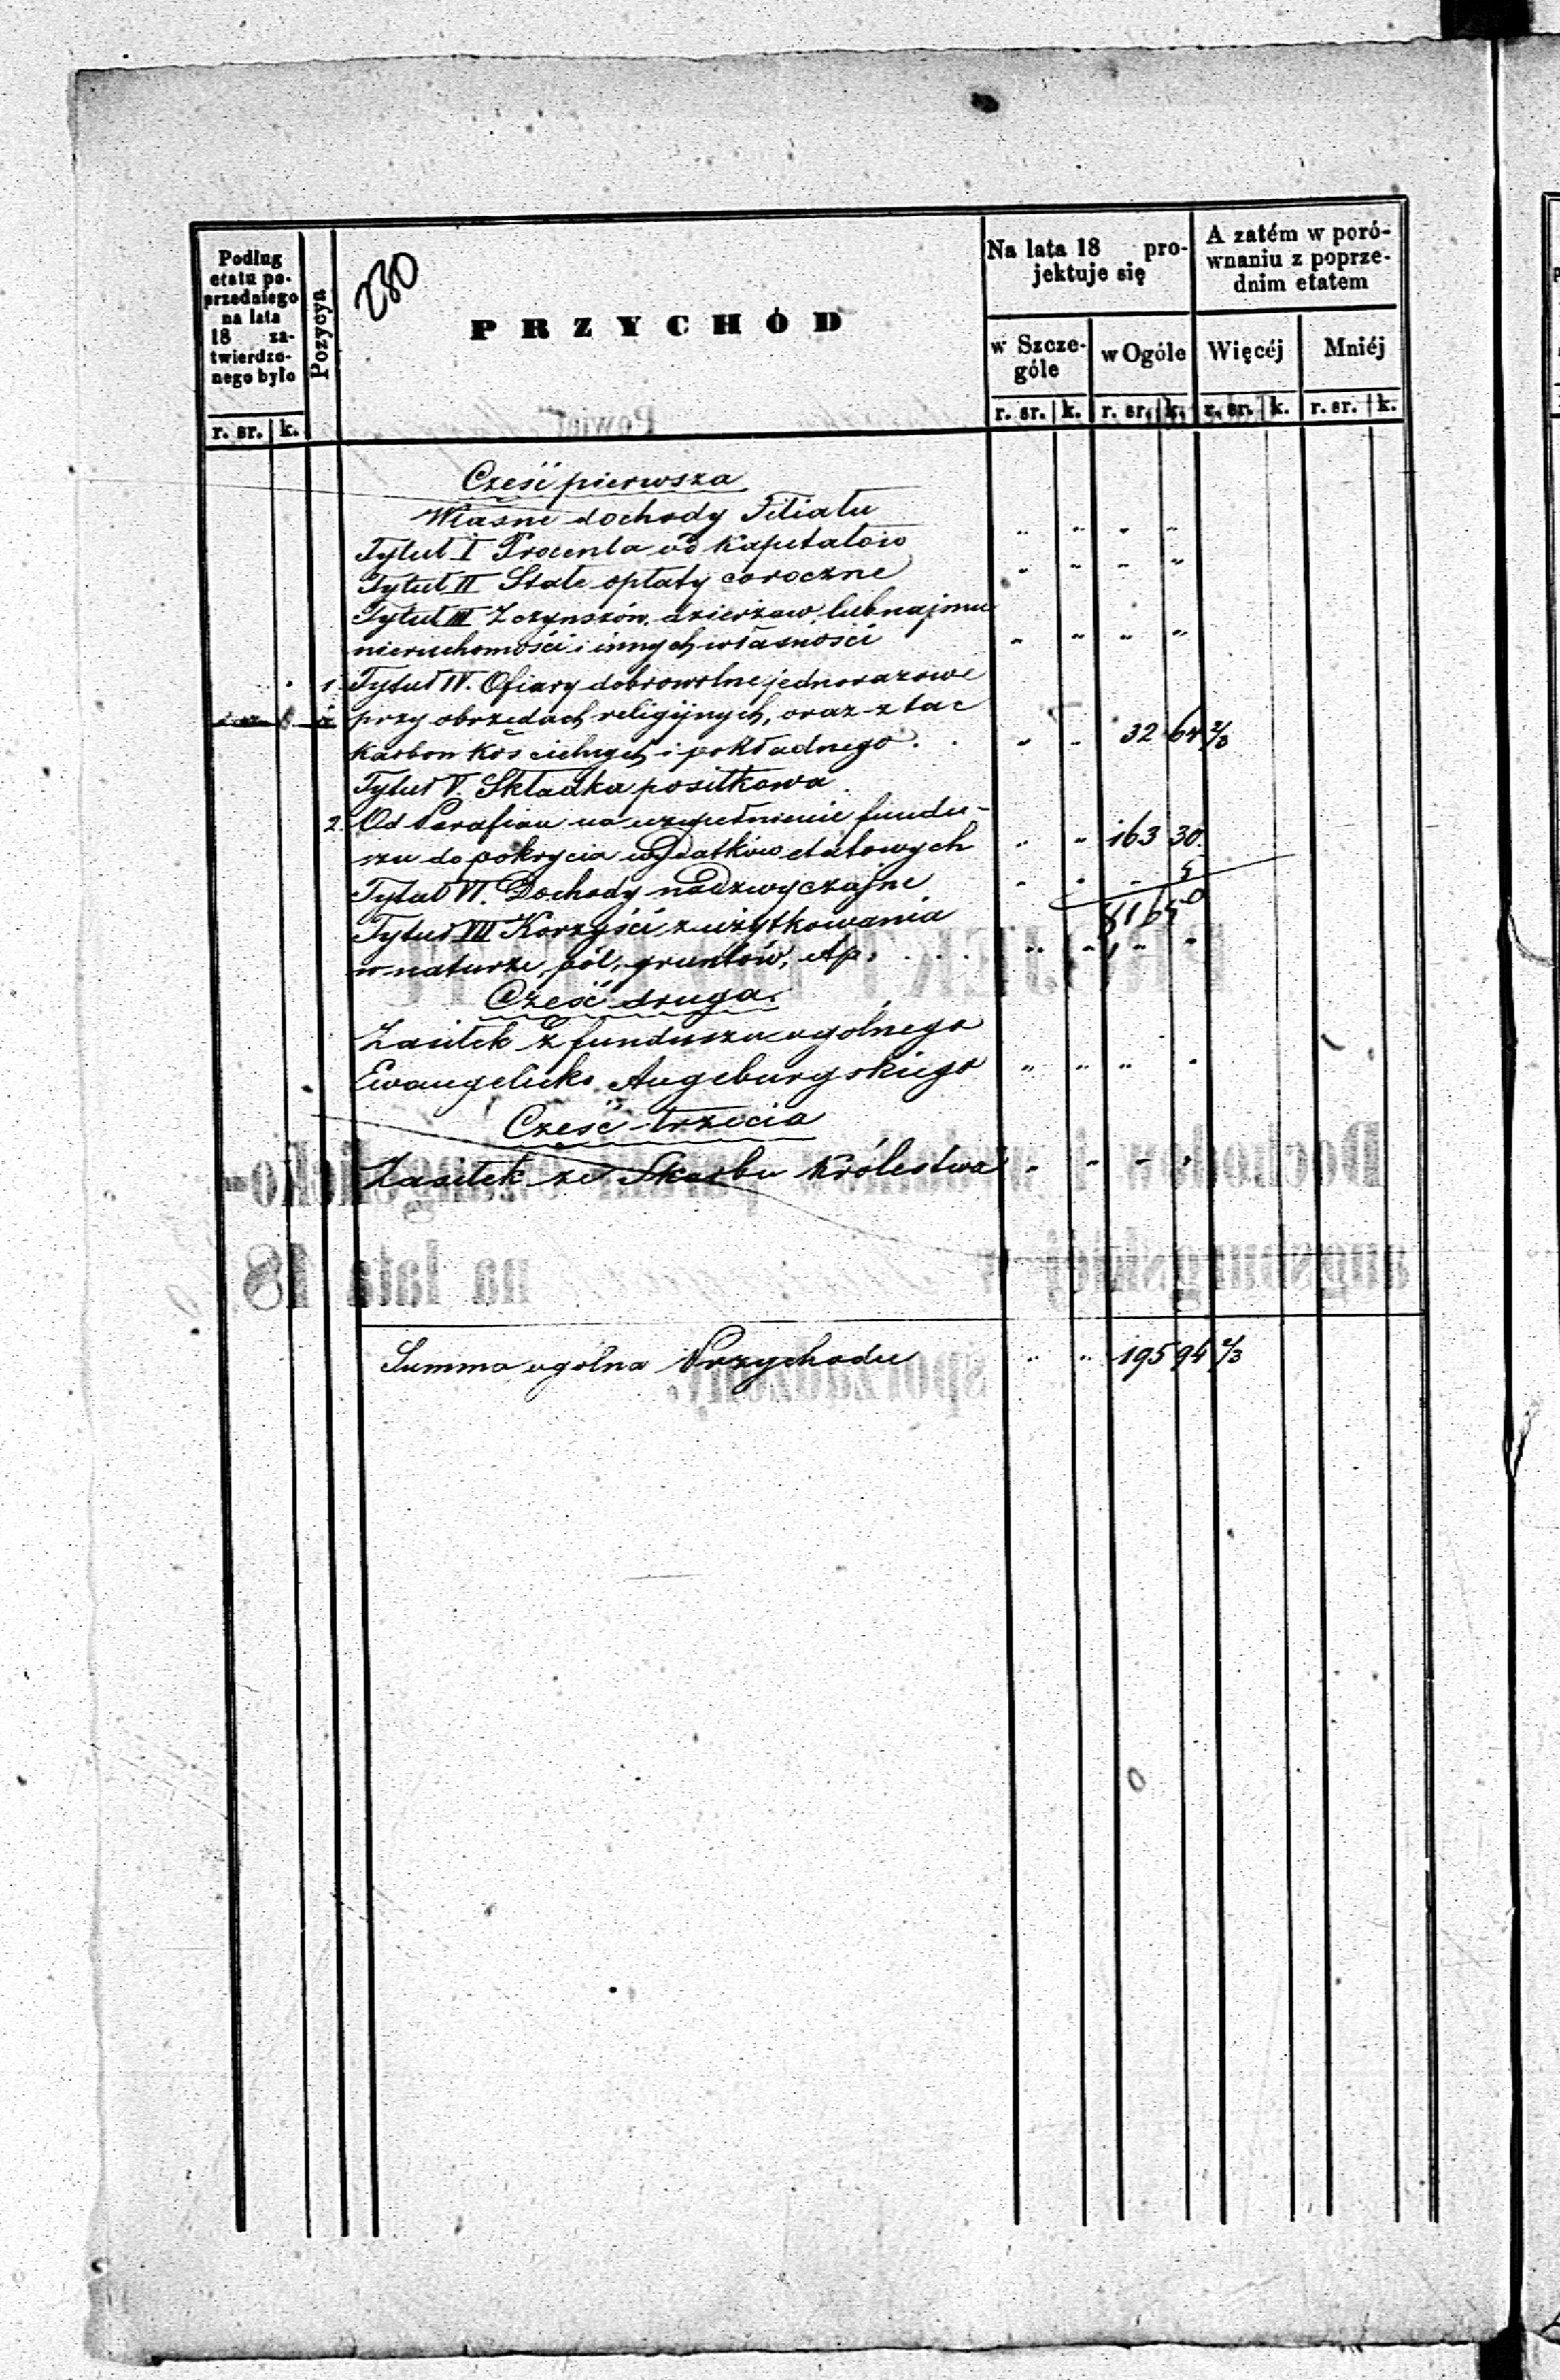 Podług
etatu po-
przedniego
na lata
18 za-
twierdzo-
nego było
r. sr. | k.
Pozycya
230
PRZYCHÓD
Na lata 18 pro-
jektuje się
w Szcze-
góle
w Ogóle
r. sr. | k. r. sr. | k.
A zatém w poró-
wnaniu z poprze-
dnim etatem
Więcéj
Mniéj
r. sr. | k. r. sr. | k.
Cześć pierwsza
Własne dochody Filiału
Tytuł I Procenta od kapitałów " " " "
Tytuł II Stałe opłaty coroczne " " " "
Tytuł III Z czynszów, dzierżaw, lub najmu
nieruchomości i innych własności " " " "
1 Tytuł IV. Ofiary dobrowolne jednorazowe
przy obrzędach religijnych, oraz z tac
karbon kościelnych i pokładnego . . " " 32 64 2/3
Tytuł V. Składka posiłkowa
2. Od Parafian na uzupełnienie fundu-
szu do pokrycia wydatków etatowych " " 163 30.
Tytuł VI. Dochody nadzwyczajne " " "
81 65
Tytuł VII Korzyści z użytkowania
w naturze, pól, gruntów, itp. . . . " " " "
Cześć druga.
Zasiłek z funduszu ogólnego
Ewangelicko Augsburgskiego " " " "
Cześć trzecia
Zasiłek ze Skarbu Królestwa " " " "
Summa ogólna Przychodu " " 195 94 2/3